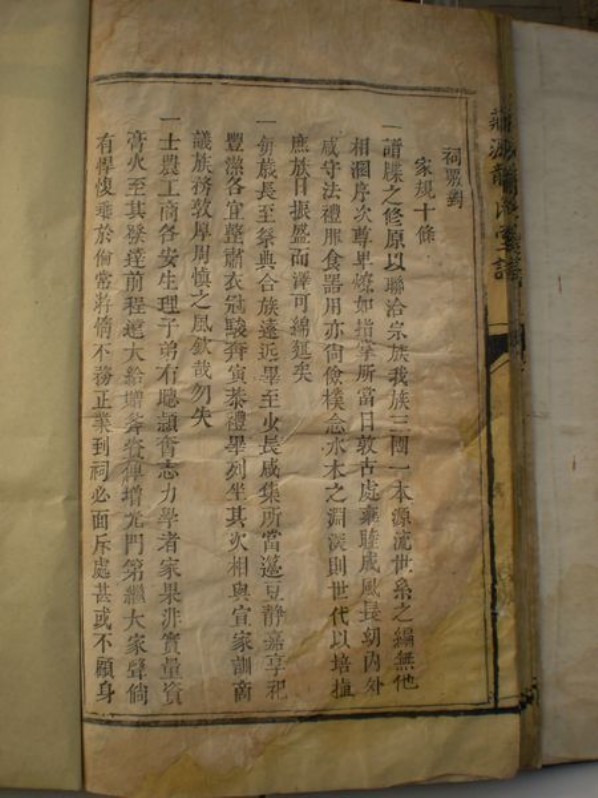 祠嚴對
家規十條
一譜牒之修原以聯洽宗族我族三團一本源流世系之編無他
相溷序次尊卑燎如指掌所當日敦古處雍睦成風長幼內外
咸守法禮服食器用亦尙儉樸念水木之淵淡則世代以培植
庶族日振盛而澤可綿延矣
一每歲長至祭典合族遠近畢至少長咸集所當籩豆靜嘉享祀
豐潔各宜整肅衣冠駿奔寅恭禮畢列坐其次相與宣家訓商
議族務敦厚周慎之風欽哉勿失
一士農工商各安生理子弟有聰頴奮志力學者家果非實量資
膏火至其發達前程遠大給增斧資俾增光門第繼大家聲倘
有悍愎乖於倫常游惰不務正業到祠必面斥處甚或不顧身
氏堂譜